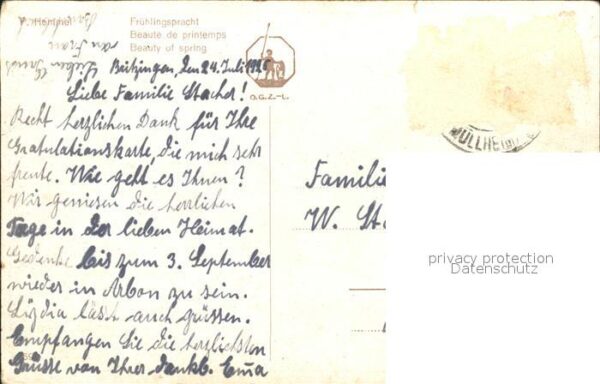 P. Hempfel
Frühlingspracht
Beaute de printemps
Beauty of spring
O.G.Z.-L.
Lieben Gruss
an Frau
Britzingen, den 24. Juli 1926
Liebe Familie Stacher!
Recht herzlichen Dank für Ihre
Gratulationskarte, die mich sehr
freute. Wie geht es Ihnen?
Wir geniesen die herrlichen
Tage in der lieben Heimat.
Gedenke bis zum 3. September
wieder in Arbon zu sein.
Lydia lässt auch grüssen.
Empfangen Sie die herzlichsten
Grüsse von Ihrer dankb. Emma
MÜLLHEIM
Familie
W. Sta
privacy protection
Datenschutz